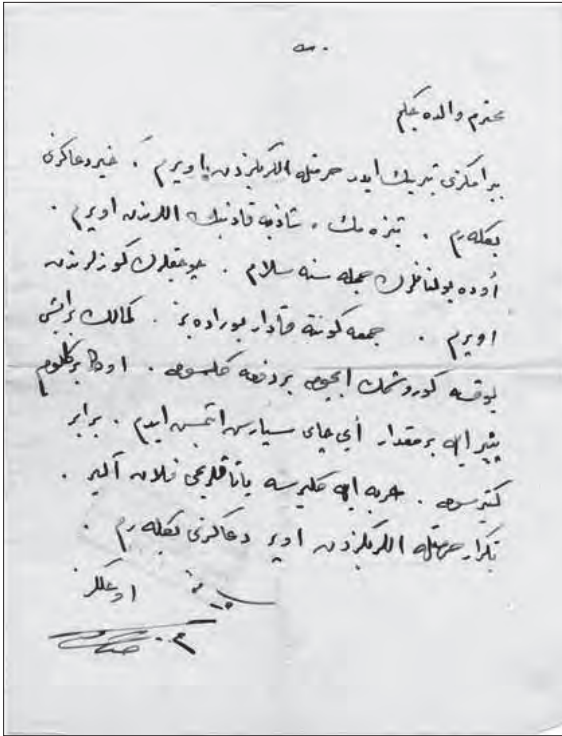 محترم والده جكم
بيرامكزى تبريك ايدر حرمتله اللريكزدن اوپرم . خير دعاكزى
بكلەرم . تيزه مك ، شاذيه قادينك اللرندن اوپرم .
أوده بولنانلرك جمله سنه سلام . چوجقلرك كوزلرندن
اوپرم . جمعه كونينه قادار بوراده يز . كمالك بر ايشى
يوقسه كوروشمك ايچون بر دفعه كلسون . اوكا بر كيلو
پينير ايله بر مقدار أيى چاى سپارش ايتمش ايدم . برابر
كتيرسون . عربه ايله كليرسه ياتاقلريمى فلان آلير .
تكرار حرمتله اللريكزدن اوپر دعاكزى بكلەرم .
اوغلكز